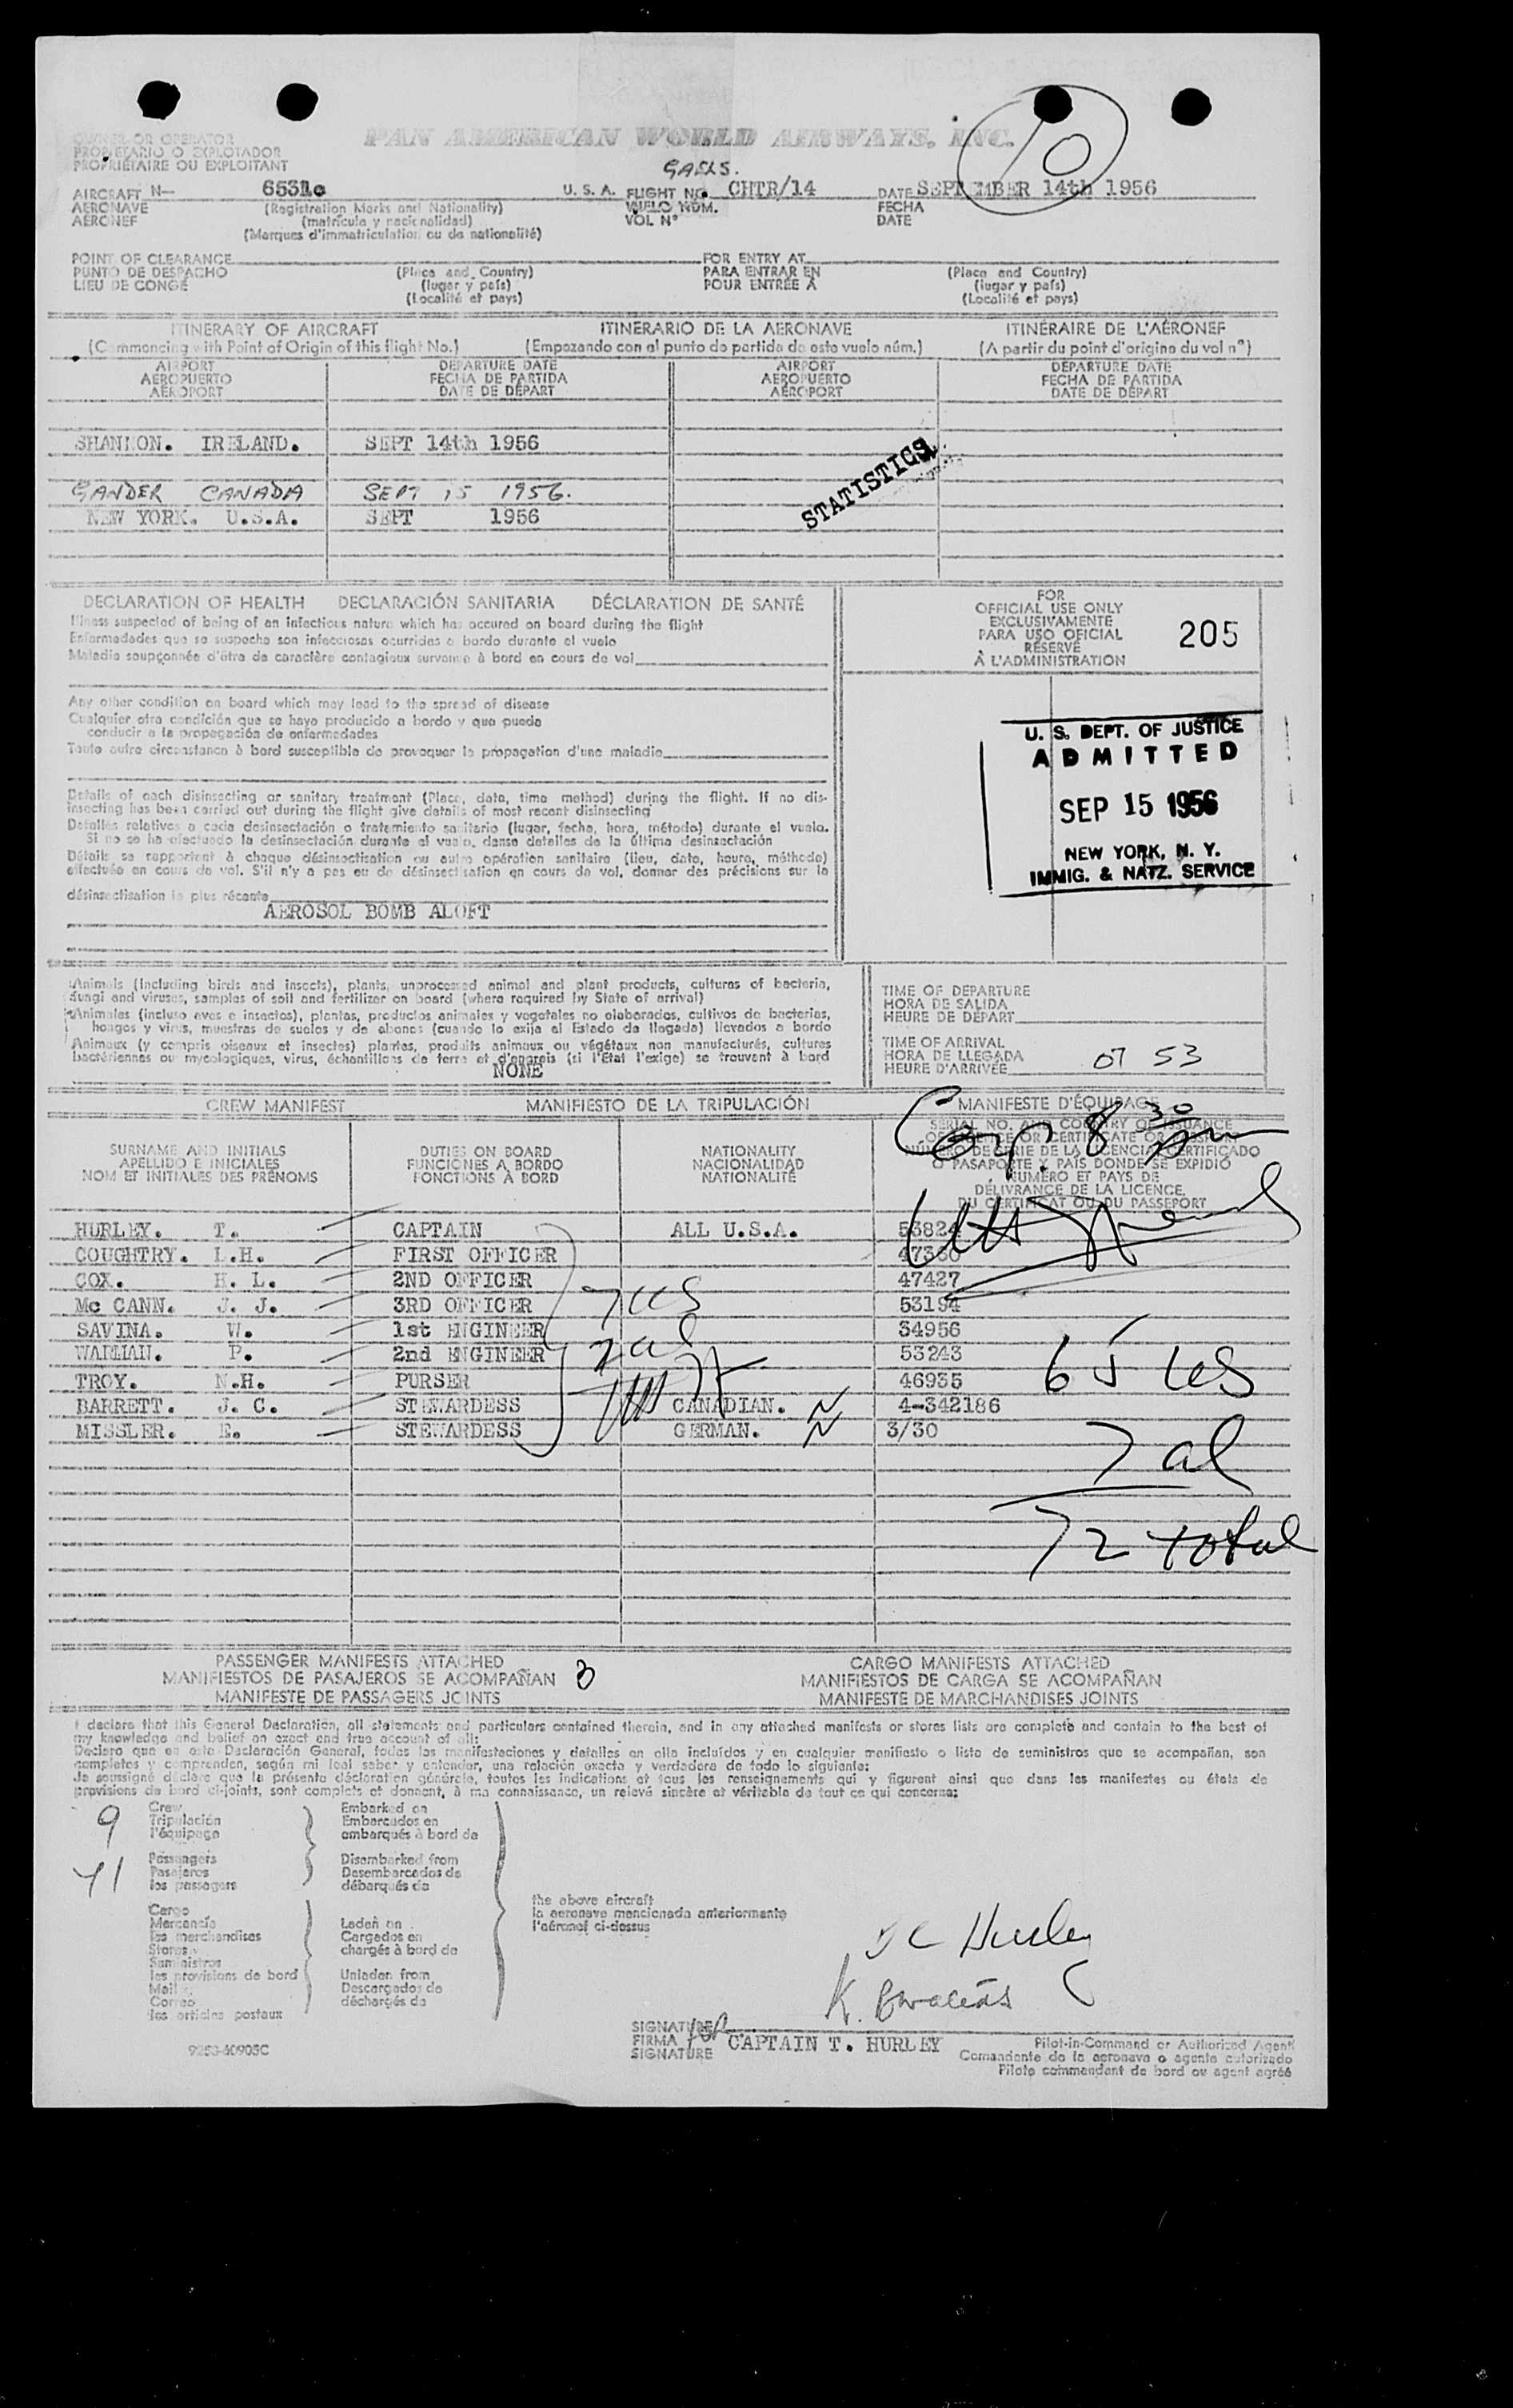 10
PAN AMERICAN WORLD AIRWAYS, INC.
OWNER OR OPERATOR
PROPIETARIO O EXPLOTADOR
PROPRIÉTAIRE OU EXPLOITANT
GAELS.
AIRCRAFT N— 6531c U. S. A. FLIGHT NO. CHTR/14 DATE SEPTEMBER 14th 1956
AERONAVE (Registration Marks and Nationality) VUELO NÚM. FECHA
AÉRONEF (matrícula y nacionalidad) VOL N° DATE
(Marques d'immatriculation ou de nationalité)
POINT OF CLEARANCE FOR ENTRY AT
PUNTO DE DESPACHO (Place and Country) PARA ENTRAR EN (Place and Country)
LIEU DE CONGÉ (lugar y país) POUR ENTRÉE À (lugar y país)
(Localité et pays) (Localité et pays)
ITINERARY OF AIRCRAFT ITINERARIO DE LA AERONAVE ITINÉRAIRE DE L'AÉRONEF
(Commencing with Point of Origin of this flight No.) (Empezando con el punto de partida de este vuelo núm.) (A partir du point d'origine du vol n°)
AIRPORT DEPARTURE DATE AIRPORT DEPARTURE DATE
AEROPUERTO FECHA DE PARTIDA AEROPUERTO FECHA DE PARTIDA
AÉROPORT DATE DE DÉPART AÉROPORT DATE DE DÉPART
SHANNON. IRELAND. SEPT 14th 1956
STATISTICS
GANDER CANADA SEPT 15 1956.
NEW YORK. U.S.A. SEPT 1956
DECLARATION OF HEALTH DECLARACIÓN SANITARIA DÉCLARATION DE SANTÉ
Illness suspected of being of an infectious nature which has occured on board during the flight
Enfermedades que se sospecha son infecciosas ocurridas a bordo durante el vuelo
Maladie soupçonnée d'être de caractère contagieux survenue à bord en cours de vol
FOR
OFFICIAL USE ONLY
EXCLUSIVAMENTE
PARA USO OFICIAL
RÉSERVÉ
À L'ADMINISTRATION
205
Any other condition on board which may lead to the spread of disease
Cualquier otra condición que se haya producido a bordo y que pueda
conducir a la propagación de enfermedades
Toute autre circonstance à bord susceptible de provoquer la propagation d'une maladie
U. S. DEPT. OF JUSTICE
ADMITTED
SEP 15 1956
NEW YORK, N. Y.
IMMIG. & NATZ. SERVICE
Details of each disinsecting or sanitary treatment (Place, date, time method) during the flight. If no dis-
insecting has been carried out during the flight give details of most recent disinsecting
Detalles relativos a cada desinsectación o tratamiento sanitario (lugar, fecha, hora, método) durante el vuelo.
Si no se ha efectuado la desinsectación durante el vuelo, dense detalles de la última desinsectación
Détails se rapportant à chaque désinsectisation ou autre opération sanitaire (lieu, date, heure, méthode)
effectuée en cours de vol. S'il n'y a pas eu de désinsectisation en cours de vol, donner des précisions sur la
désinsectisation la plus récente
AEROSOL BOMB ALOFT
Animals (Including birds and insects), plants, unprocessed animal and plant products, cultures of bacteria,
fungi and viruses, samples of soil and fertilizer on board (where required by State of arrival)
Animales (incluso aves e insectos), plantas, productos animales y vegetales no elaborados, cultivos de bacterias,
hongos y virus, muestras de suelos y de abonos (cuando lo exija el Estado de llegada) llevados a bordo
Animaux (y compris oiseaux et insectes) plantes, produits animaux ou végétaux non manufacturés, cultures
bactériennes ou mycologiques, virus, échantillons de terre et d'engrais (si l'État l'exige) se trouvant à bord
NONE
TIME OF DEPARTURE
HORA DE SALIDA
HEURE DE DÉPART
TIME OF ARRIVAL
HORA DE LLEGADA
HEURE D'ARRIVÉE 07 53
CREW MANIFEST MANIFIESTO DE LA TRIPULACIÓN MANIFESTE D'ÉQUIPAGE
SURNAME AND INITIALS DUTIES ON BOARD NATIONALITY
APELLIDO E INICIALES FUNCIONES A BORDO NACIONALIDAD
NOM ET INITIALES DES PRÉNOMS FONCTIONS À BORD NATIONALITÉ
SERIAL NO. AND COUNTRY OF ISSUANCE
OF LICENCE OR CERTIFICATE OR PASSPORT
NÚMERO DE SERIE DE LA LICENCIA, CERTIFICADO
O PASAPORTE Y PAÍS DONDE SE EXPIDIÓ
NUMÉRO ET PAYS DE
DÉLIVRANCE DE LA LICENCE,
DU CERTIFICAT OU DU PASSEPORT
HURLEY. T. CAPTAIN ALL U.S.A. 53824
COUGHTRY. L.H. FIRST OFFICER 47330
COX. H. L. 2ND OFFICER 47427
Mc CANN. J. J. 3RD OFFICER 7 US 53194
SAVINA. W. 1st ENGINEER 2 al 34956
P. 2nd ENGINEER 53243
TROY. N.H. PURSER 46935 65 US
BARRETT. J. C. STEWARDESS CANADIAN. 4-342186
MISSLER. E. STEWARDESS GERMAN. 3/30
7 al
72 total
PASSENGER MANIFESTS ATTACHED CARGO MANIFESTS ATTACHED
MANIFIESTOS DE PASAJEROS SE ACOMPAÑAN 3 MANIFIESTOS DE CARGA SE ACOMPAÑAN
MANIFESTE DE PASSAGERS JOINTS MANIFESTE DE MARCHANDISES JOINTS
I declare that this General Declaration, all statements and particulars contained therein, and in any attached manifests or stores lists are complete and contain to the best of
my knowledge and belief an exact and true account of all:
Declaro que en esta Declaración General, todas las manifestaciones y detalles en ella incluídos y en cualquier manifiesto o lista de suministros que se acompañan, son
completos y comprenden, según mi leal saber y entender, una relación exacta y verdadera de todo lo siguiente:
Je soussigné déclare que la présente déclaration générale, toutes les indications et tous les renseignements qui y figurent ainsi que dans les manifestes ou états de
provisions de bord ci-joints, sont complets et donnent, à ma connaissance, un relevé sincère et véritable de tout ce qui concerne:
9 Crew Embarked on
Tripulación Embarcados en
l'équipage embarqués à bord de
71 Passengers Disembarked from
Pasajeros Desembarcados de
les passagers débarqués de
the above aircraft
la aeronave mencionada anteriormente
l'aéronef ci-dessus
Cargo
Mercancía Laden on
les marchandises Cargados en
Stores chargés à bord de
Suministros
les provisions de bord Unladen from
Mail Descargados de
Correo déchargés de
les articles postaux
T C Hurley
SIGNATURE
FIRMA for CAPTAIN T. HURLEY Pilot-in-Command or Authorized Agent
SIGNATURE Comandante de la aeronave o agente autorizado
Pilote commandant de bord ou agent agréé
9253-40905C